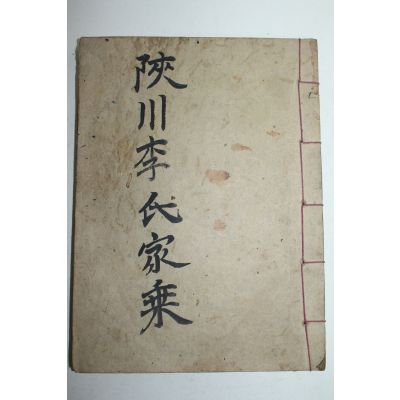 陜川李氏家乗